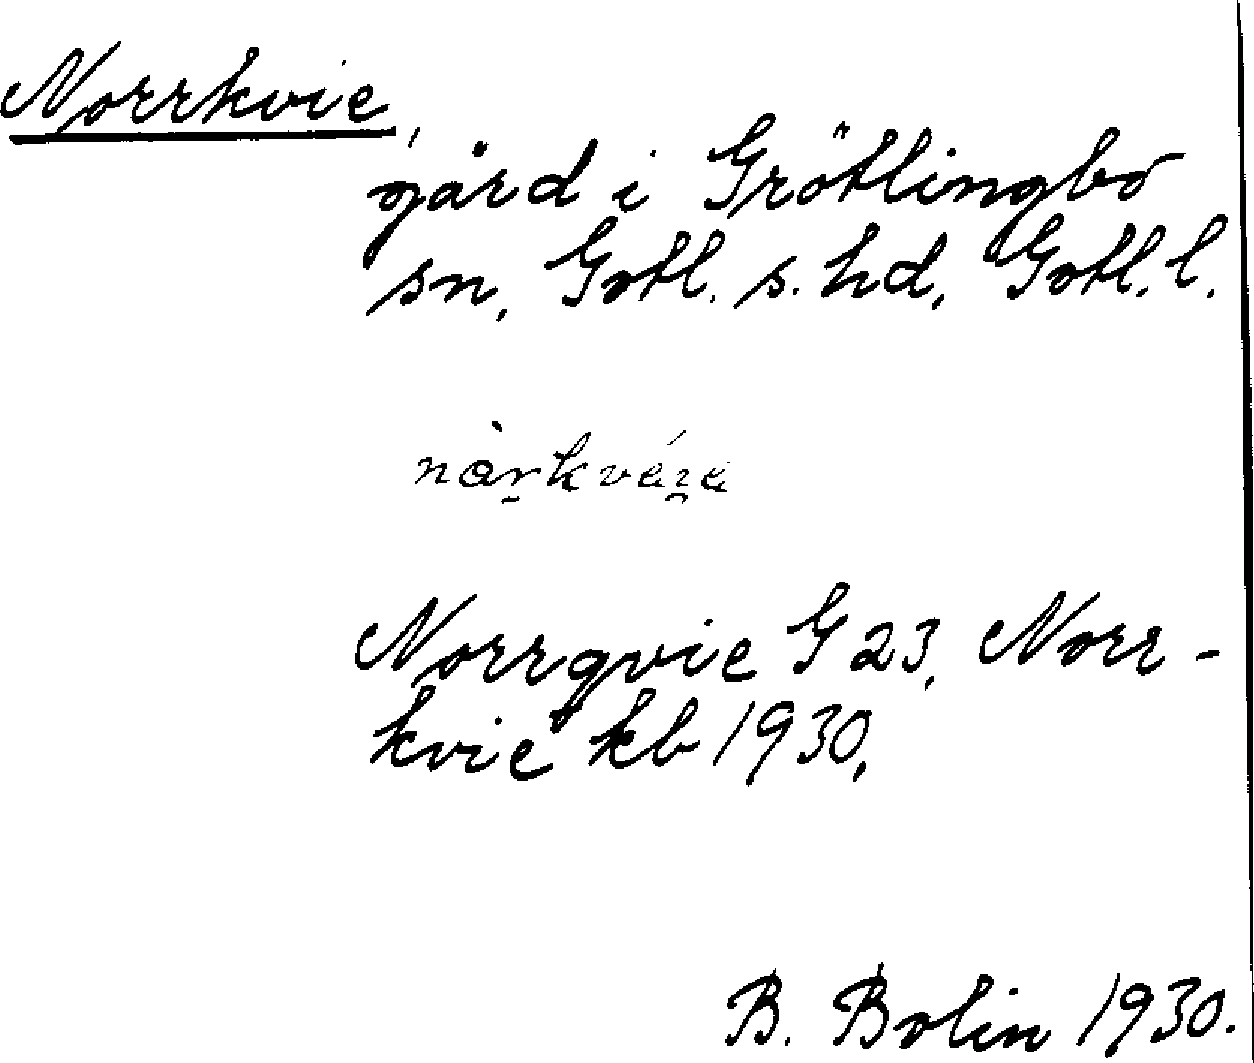 Norrkvie,
gård i Grötlingbo
sn, Gotl. s. hd, Gotl. l.
Norrqvie G 23, Norr-
kvie kb 1930,
B. Bolin 1930.